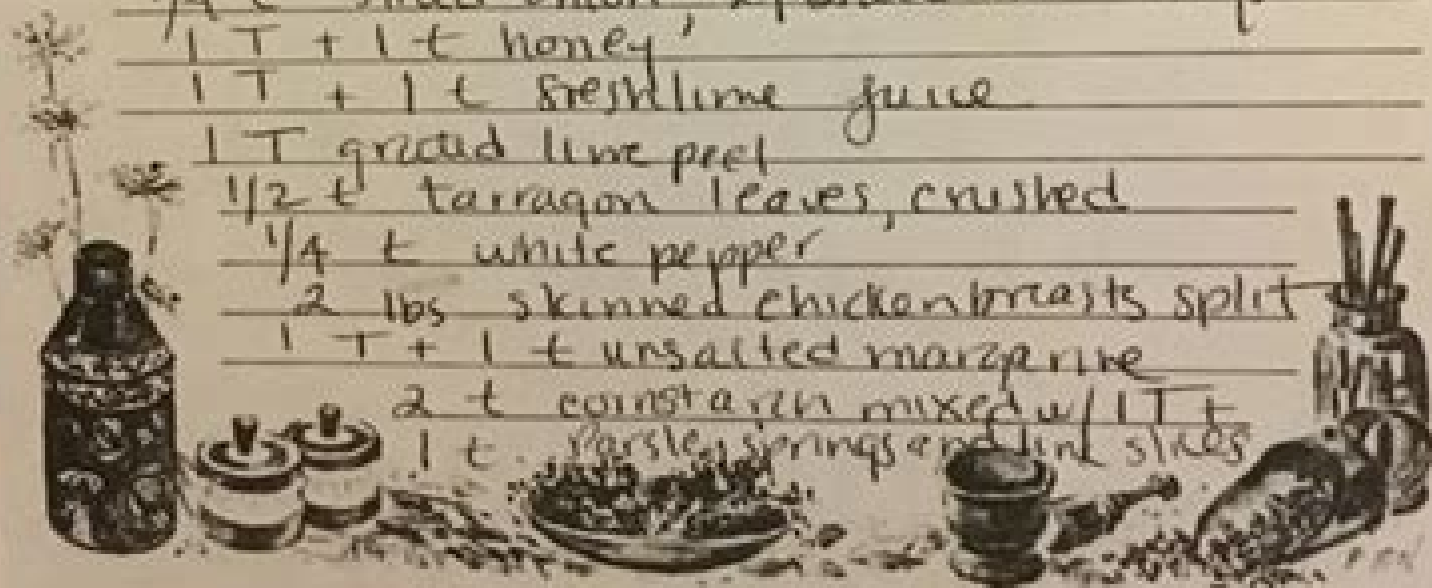 1 T + 1 t honey
1 T + 1 t fresh lime juice
1 T grated lime peel
1/2 t tarragon leaves, crushed
1/4 t white pepper
2 lbs skinned chicken breasts split
1 T + 1 t unsalted margarine
2 t cornstarch mixed w/ 1 T +
1 t. Parsley springs and lime slices